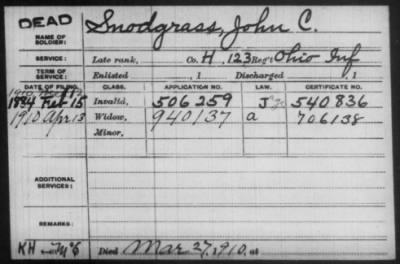 DEAD
NAME OF SOLDIER: Snodgrass, John C.
SERVICE: Late rank, Co. H, 123 Reg't Ohio Inf
TERM OF SERVICE: Enlisted , 1 Discharged , 1
DATE OF FILING. CLASS. APPLICATION NO. LAW. CERTIFICATE NO.
1884 Feb 15 Invalid, 506259 540836
1910 Apr 13 Widow, 940137 a 706138
Minor,
ADDITIONAL SERVICES:
REMARKS:
KH Died Mar 27, 1910, at